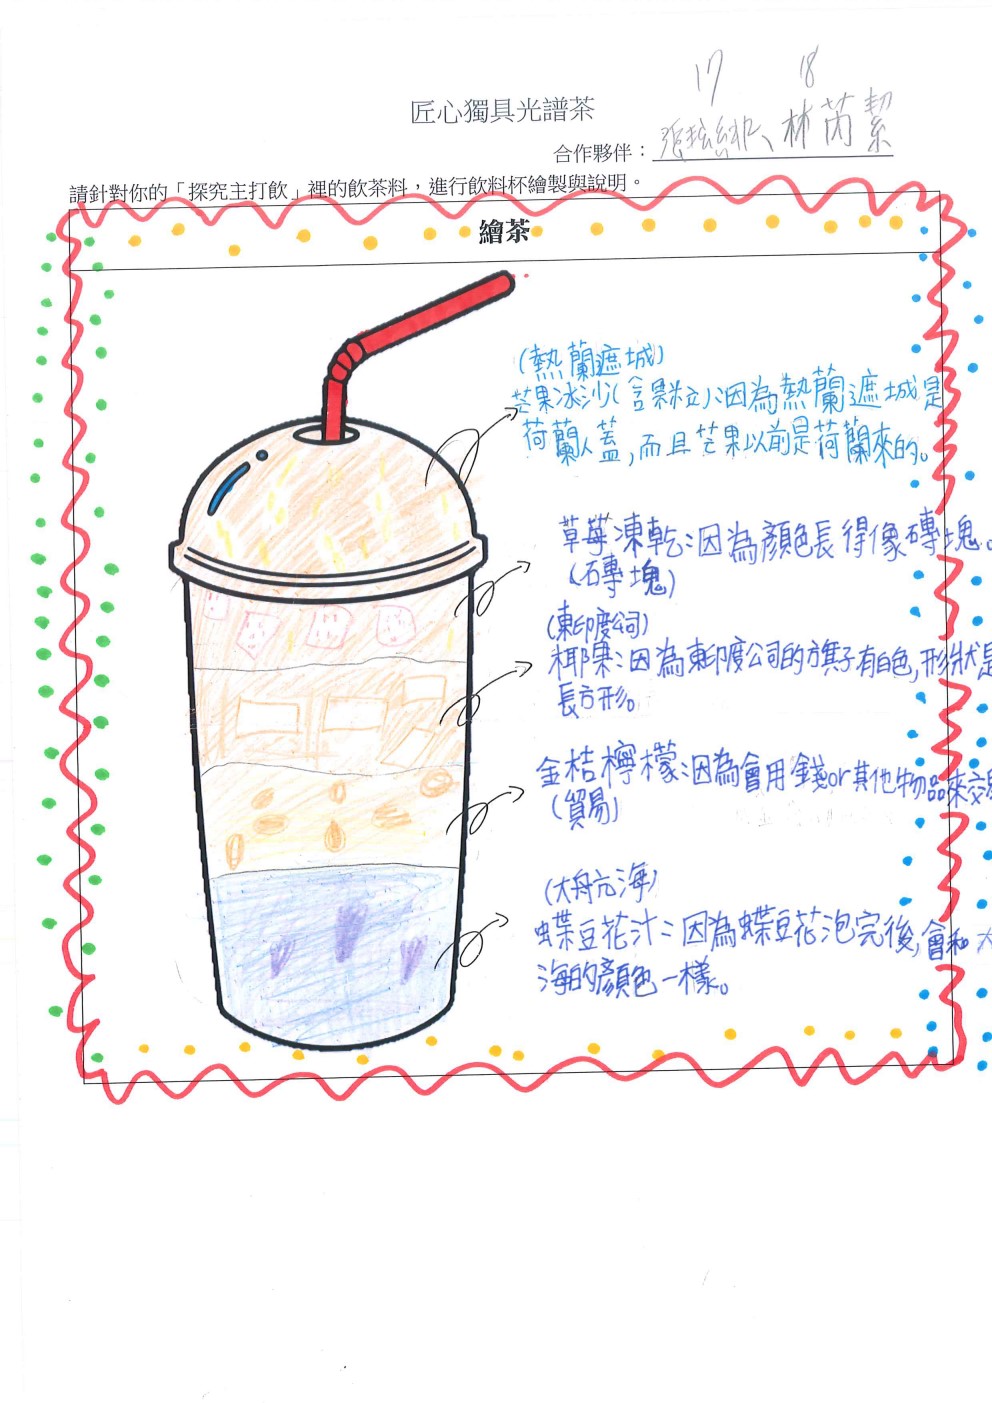 17 18
匠心獨具光譜茶
合作夥伴：張 、林芮絜
請針對你的「探究主打飲」裡的飲茶料，進行飲料杯繪製與說明。
繪茶
(熱蘭遮城)
芒果冰沙(含果粒):因為熱蘭遮城是
荷蘭人蓋,而且芒果以前是荷蘭來的。
草莓凍乾:因為顏色長得像磚塊。
(磚塊)
(東印度公司)
椰果:因為東印度公司的旗子有白色,形狀是
長方形。
金桔檸檬:因為會用錢or其他物品來交
(貿易)
(大航海)
蝶豆花汁:因為蝶豆花泡完後,會和大
海的顏色一樣。